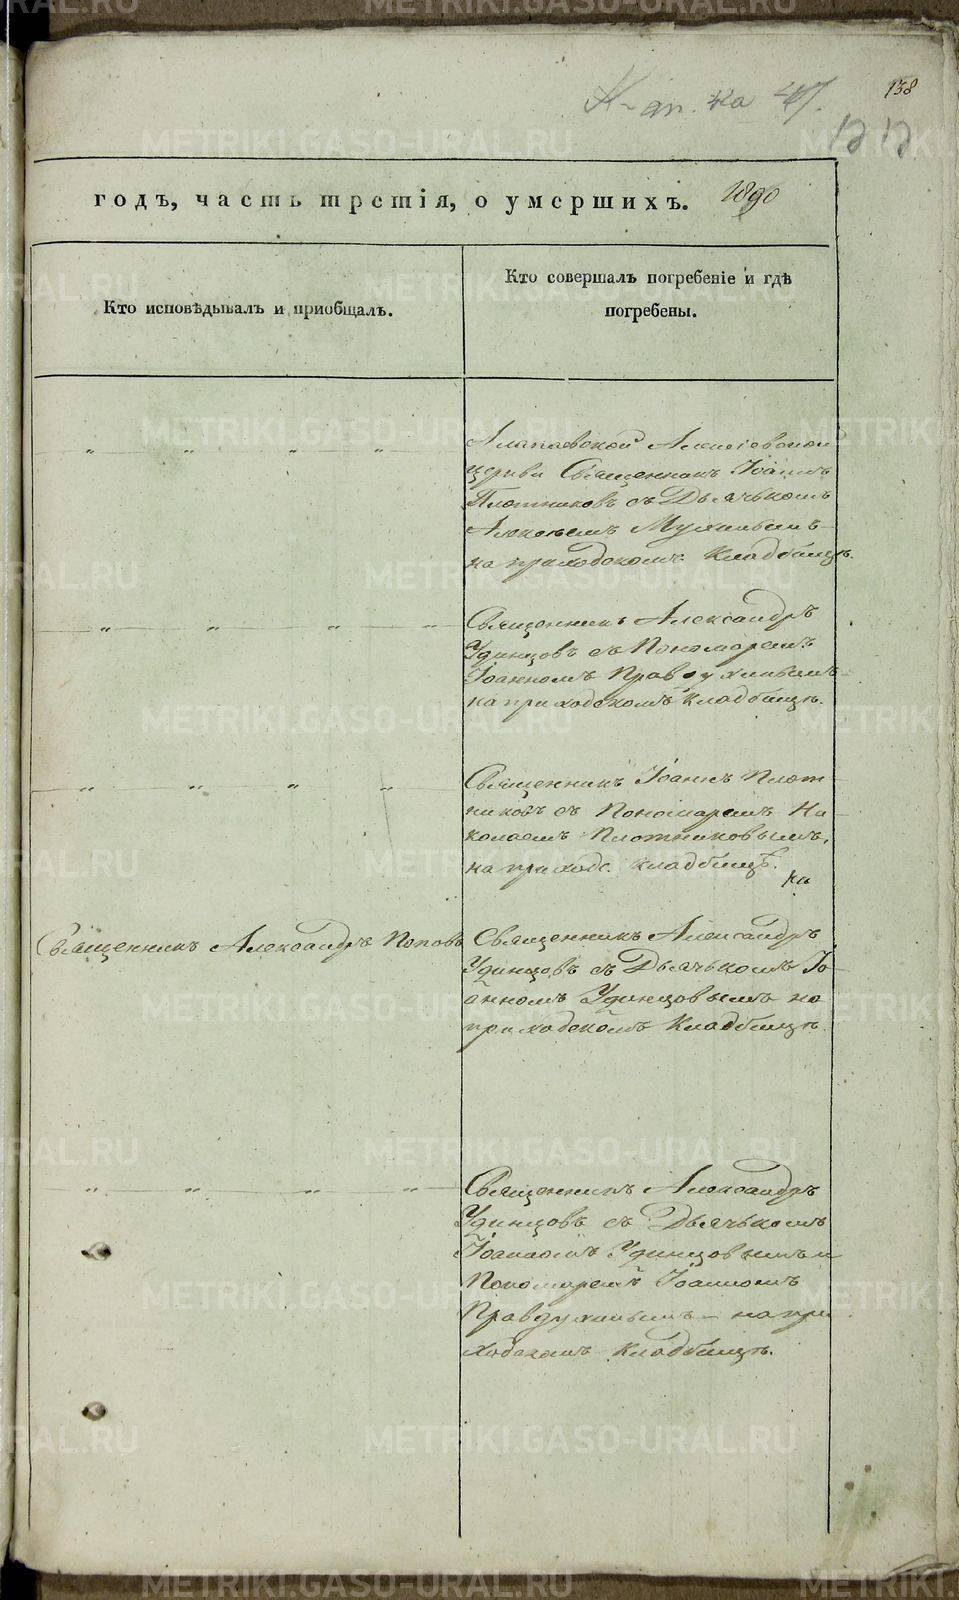 138
годъ, часть третія, о умершихъ. 1890
Кто исповѣдывалъ и пріобщалъ.
Кто совершалъ погребеніе и гдѣ
погребены.
Алапаевской Алексіевской
церкви Священникъ Іоаннъ
Плотниковъ съ Дьячькомъ
Алексѣемъ
на приходскомъ Кладбищѣ.
Священникъ Александръ
Удинцовъ съ Пономаремъ
Іоанномъ Правдухинымъ
на приходскомъ Кладбищѣ.
Священникъ Іоаннъ Плот-
никовъ съ Пономаремъ Ни
колаемъ Плотниковымъ,
на приходс. кладбищѣ.
Священникъ Александръ Поповъ
Священникъ Александръ
Удинцовъ съ Дьячькомъ Іо-
анномъ Удинцовымъ на
приходскомъ Кладбищѣ
Священникъ Александръ
Удинцовъ съ Дьячькомъ
Іоанномъ Удинцовымъ и
Пономаремъ Іоанномъ
Правдухинымъ на при
ходскомъ кладбищѣ.
METRIKI.GASO-URAL.RU